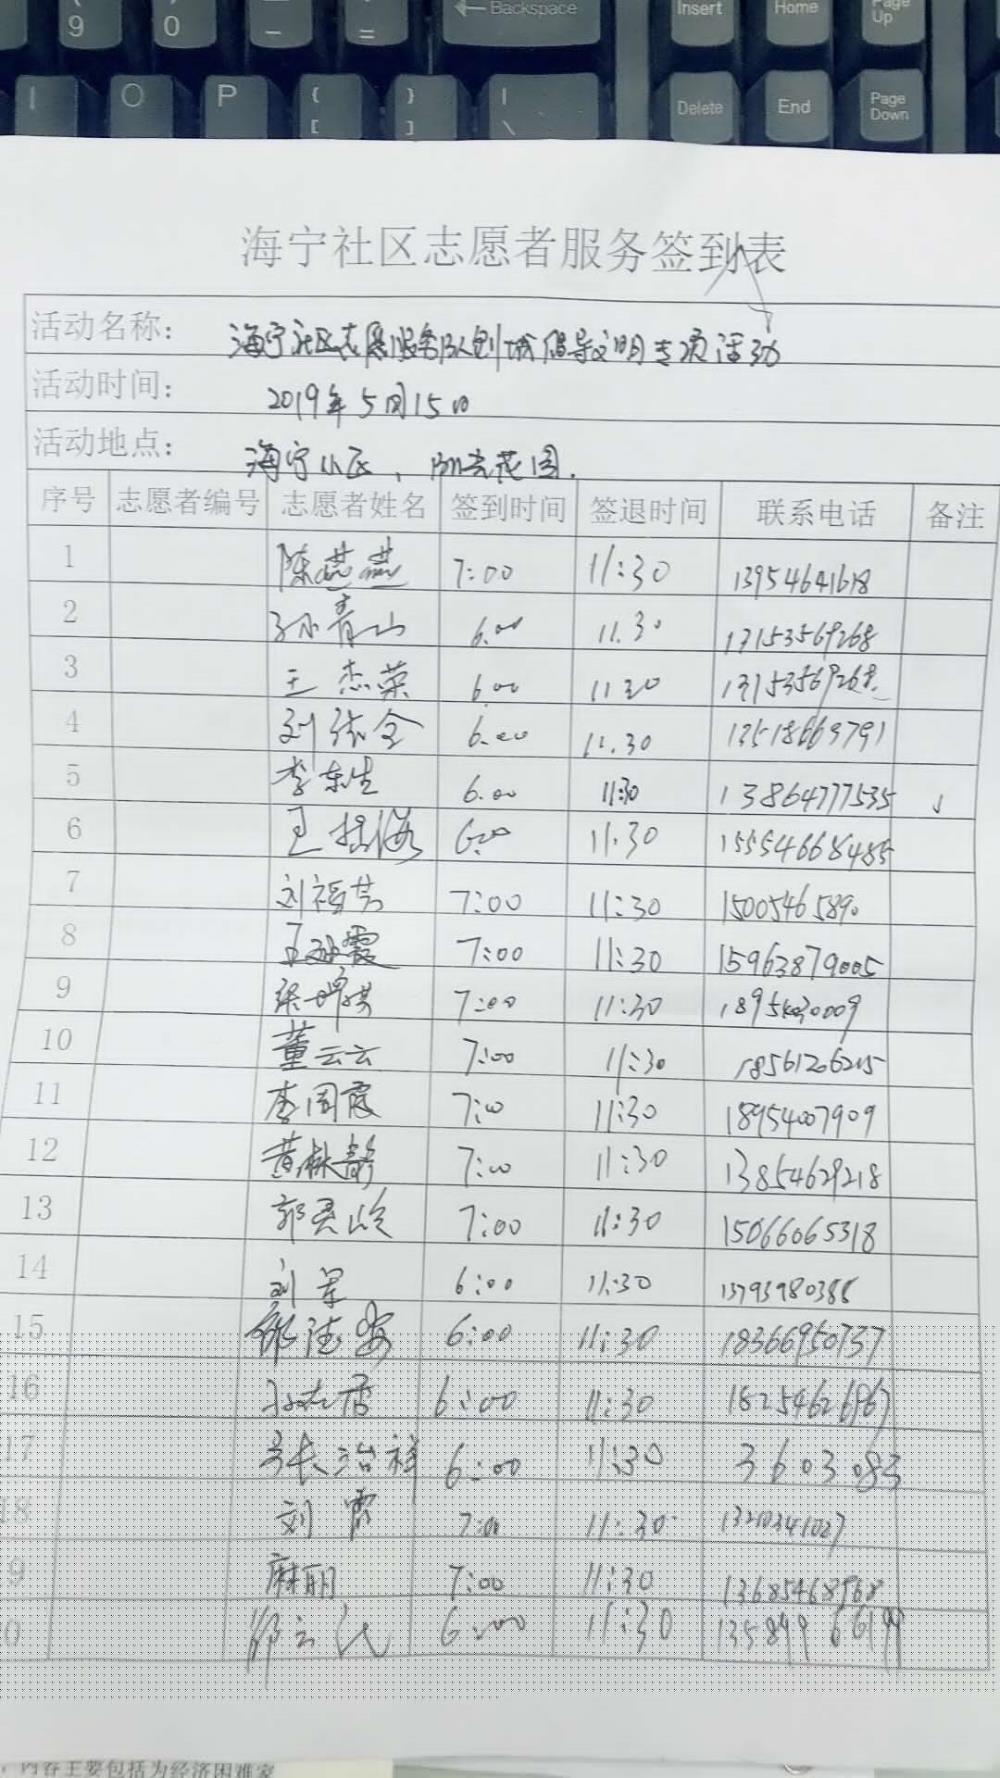 9 0 - = ← Backspace Insert Home Page Up
I O P { [ } ] | \ Delete End Page Down
海宁社区志愿者服务签到表
活动名称: 海宁社区志愿服务队创城倡导文明专项活动
活动时间: 2019年5月15日
活动地点: 海宁小区、花园.
序号 志愿者编号 志愿者姓名 签到时间 签退时间 联系电话 备注
1 陈燕燕 7:00 11:30 13954641618
2 孙青山 6.00 11.30 13153569268
3 王杰荣 6.00 11 30 13153569268.
4 刘 6.00 11.30
5 李东生 6.00 11:30 13864777535
6 王 6:00 11.30 15554668485
7 刘福芳 7:00 11:30 15005465890
8 王 霞 7:00 11:30 15963879005
9 张 7:00 11:30
10 董云云 7:00 11:30 18561206215
11 李国霞 7:00 11:30 18954007909
12 黄林静 7:00 11:30 13854629218
13 郭 7:00 11:30 15066065318
14 刘 6:00 11:30 13793980388
15 6:00 11:30 18366950737
16 6:00 11:30 18254626967
17 张治祥 6:00 11:30 3603083
18 刘霄 7:00 11:30
19 麻丽 7:00 11:30 13685468968
20 6:00 11:30 13589966199
内容主要包括为经济困难家